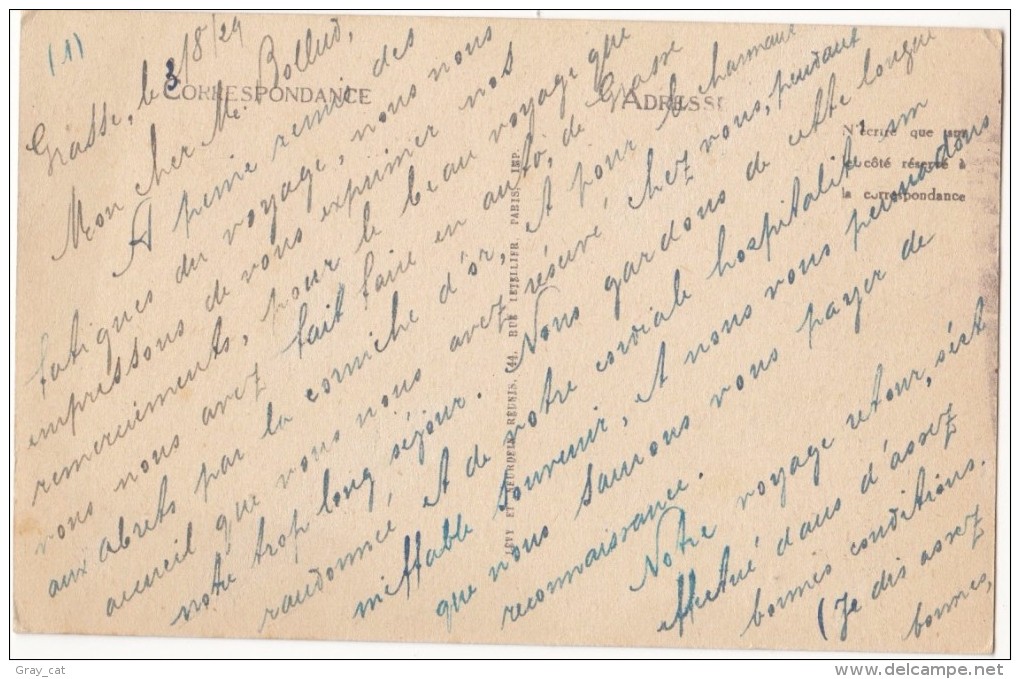 (1)
Grasse, le 3/8/29
CORRESPONDANCE
ADRESSE
N'écrire que sur
le côté réservé à
la correspondance
Mon cher Mr. Bollud,
A peine remis des
fatigues du voyage, nous nous
empressons de vous exprimer nos
remerciements, pour le beau voyage que
vous nous avez fait faire en auto, de Grasse
aux abrets par la corniche d'or, et pour le charmant
accueil que vous nous avez réservé chez vous, pendant
notre trop long séjour. Nous gardons de cette longue
randonnée, et de votre cordiale hospitalité un
ineffable souvenir, et nous vous
que nous saurons vous payer de
reconnaissance.
Notre voyage retour, s'est
effectué dans d'assez
bonnes conditions.
(Je dis assez
bonnes,
LÉVY ET NEURDEIN RÉUNIS, 44, RUE LETELLIER, PARIS, IMP.
Gray_cat
www.delcampe.net